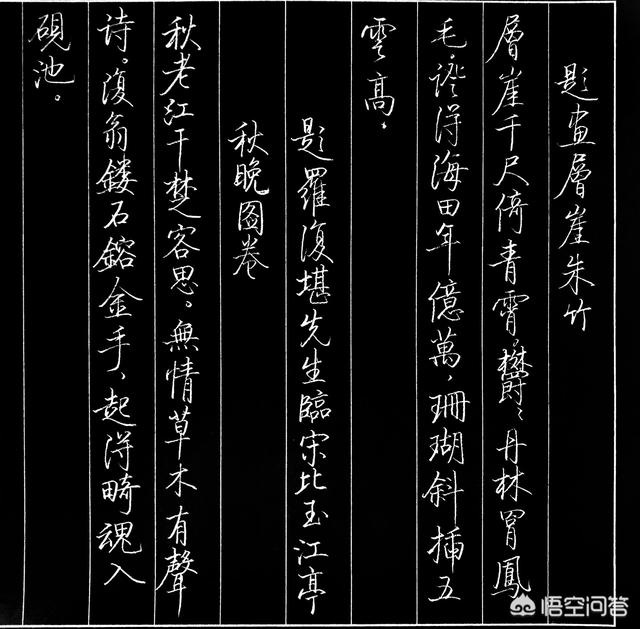 題画層崖朱竹
層崖千尺倚青霄，欝〻丹林胃鳳
毛，證得海田年億萬，珊瑚斜插五
雲高，
題羅復堪先生臨宋比玉江亭
秋晚圖卷
秋老江干楚客思。無情草木有聲
詩。復翁鏤石鎔金手，起得畸魂入
硯池。
悟空问答